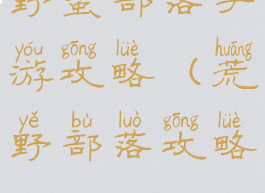 野蛮部落手
yóu gōng lüè huāng
游攻略（荒
yě bù luò gōng lüè
野部落攻略